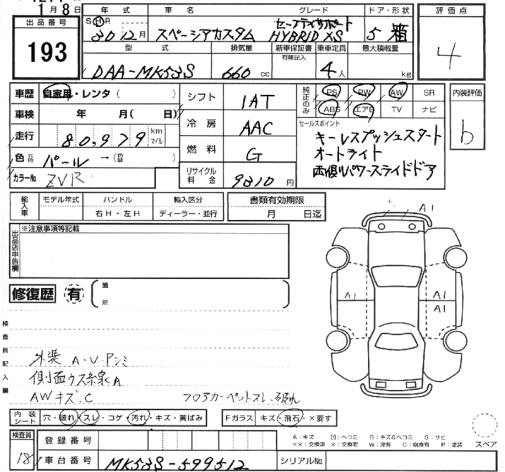 1月8日
年式 車名 グレード ドア・形状 評価点
出品番号 SHR 30 12月 スペーシアカスタム セーフティサポート HYBRID XS 5 箱 4
193
型式 排気量 新車保証書 有限記入 乗車定員 最大積載量
DAA-MK53S 660 cc 4人 kg
車歴 自家用・レンタ( ) シフト 1AT 純正のみ PS PW AW SR 内装評価
ABS エアB TV ナビ
車検 年 月( 日) 冷房 AAC セールスポイント b
走行 80,979 km マイル キーレスプッシュスタート
燃料 G オートライト
色 パール→( ) 両側パワースライドドア
カラーNo ZVR リサイクル料金 9810円
輸入車 モデル年式 ハンドル 輸入区分 書類有効期限
右H・左H ディーラー・並行 月 日迄 A1
出品店申告欄 ※注意事項等記載
修復歴 有 箇所
A1 A1
検査員記入欄
外装 A・U・Pシミ
側面ウス線A
AWキズ・C
内装シート 穴・破れ・スレ・コゲ・汚れ・キズ・黄ばみ Fガラス キズ・飛石・×要す
スペア
検査員 登録番号
A：キズ E：エクボ B：キズ&ヘコミ S：サビ
××：交換済 ×：要交換 W：波 C：腐食有 P：塗装
18 車台番号 MK53S-599512 シリアルNo